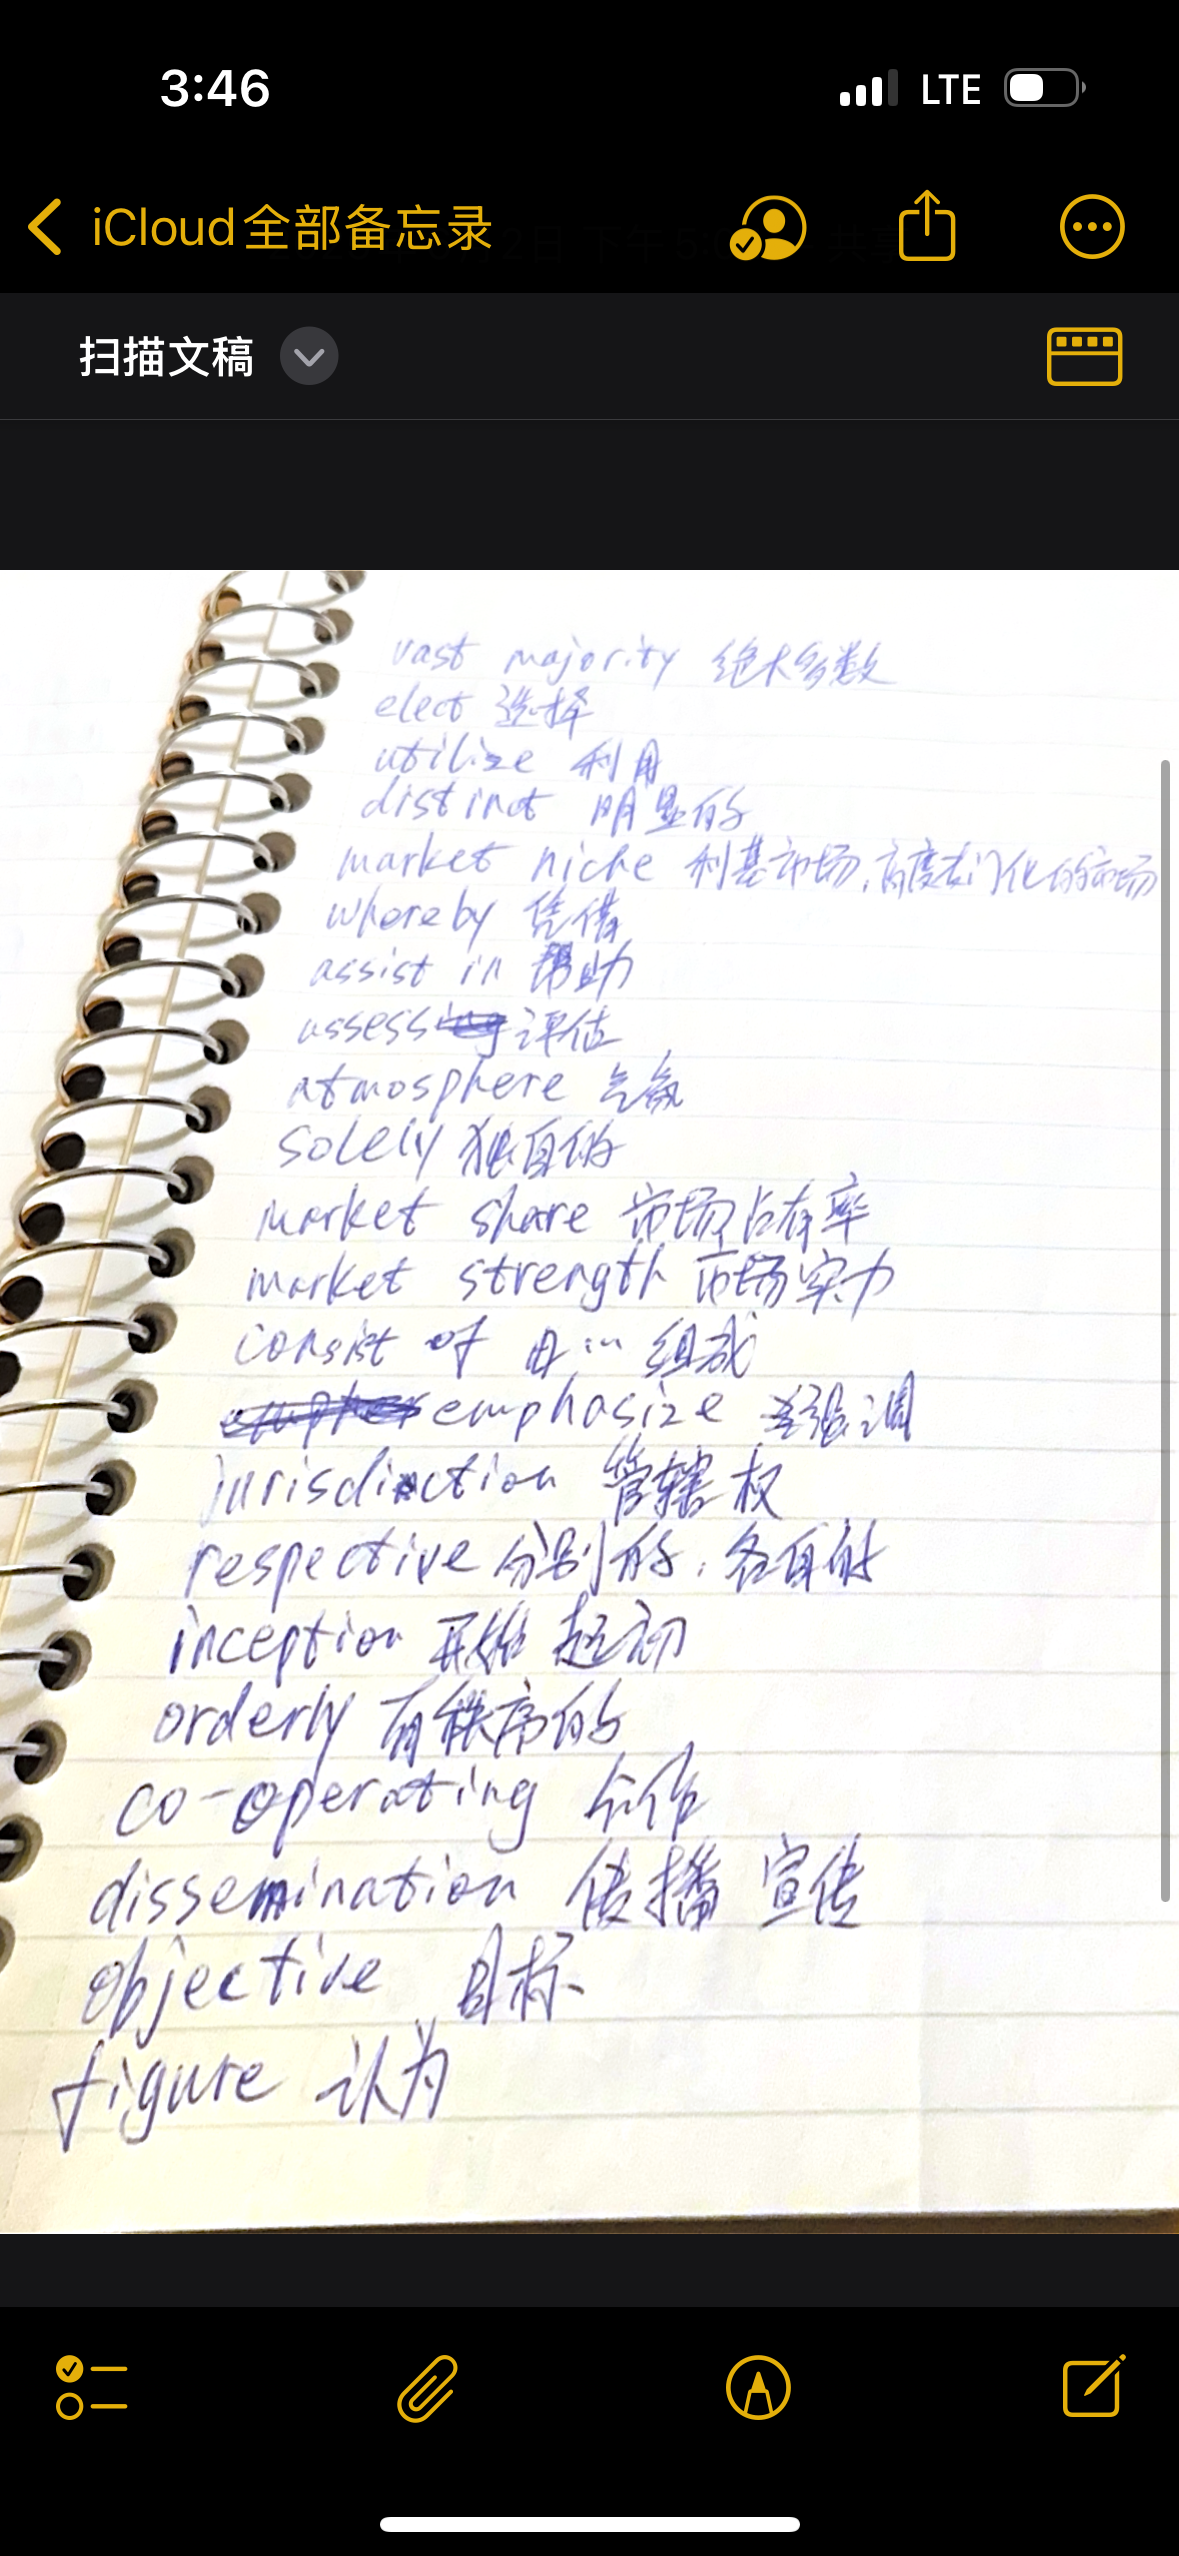 3:46 LTE
iCloud全部备忘录
扫描文稿
vast majority 绝大多数
elect 选择
utilize 利用
distinct 明显的
market niche 利基市场,高度专门化的市场
whereby 凭借
assist in 帮助
assess 评估
atmosphere 气氛
solely 独自的
market share 市场占有率
market strength 市场实力
consist of 由… 组成
emphasize 强调
jurisdiction 管辖权
respective 分别的,各自的
inception 开始 起初
orderly 有秩序的
co-operating 合作
dissemination 传播 宣传
objective 目标
figure 认为